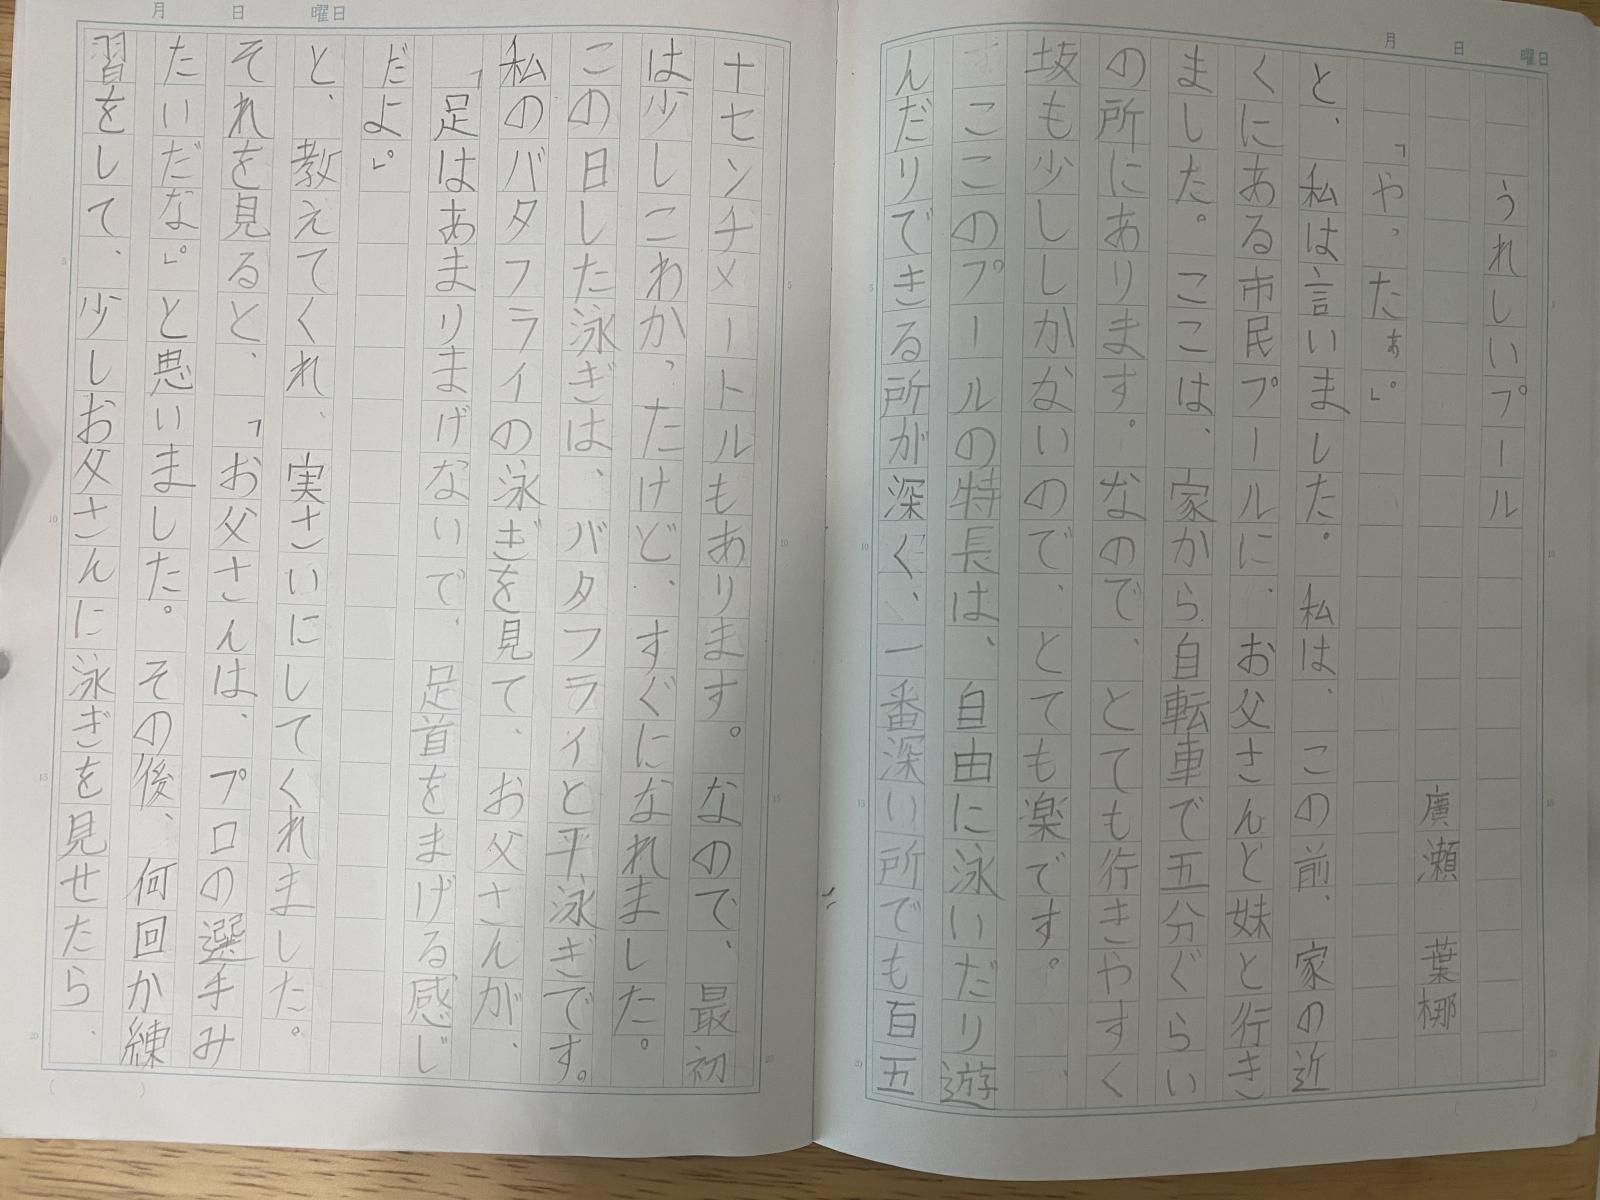 月 日 曜日
うれしいプール
廣瀬 葉梛
「やったぁ。」
と、私は言いました。私は、この前、家の近
くにある市民プールに、お父さんと妹と行き
ました。ここは、家から自転車で五分ぐらい
の所にあります。なので、とても行きやすく、
坂も少ししかないので、とても楽です。
ここのプールの特長は、自由に泳いだり遊
んだりできる所が深く、一番深い所でも百五
月 日 曜日
十センチメートルもあります。なので、最初
は少しこわかったけど、すぐになれました。
この日した泳ぎは、バタフライと平泳ぎです。
私のバタフライの泳ぎを見て、お父さんが、
「足はあまりまげないで、足首をまげる感じ
だよ。」
と、教えてくれ、実さいにしてくれました。
それを見ると、「お父さんは、プロの選手み
たいだな。」と思いました。その後、何回か練
習をして、少しお父さんに泳ぎを見せたら、